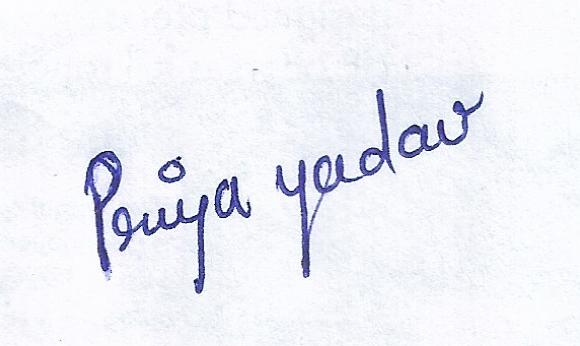 Priya yadav